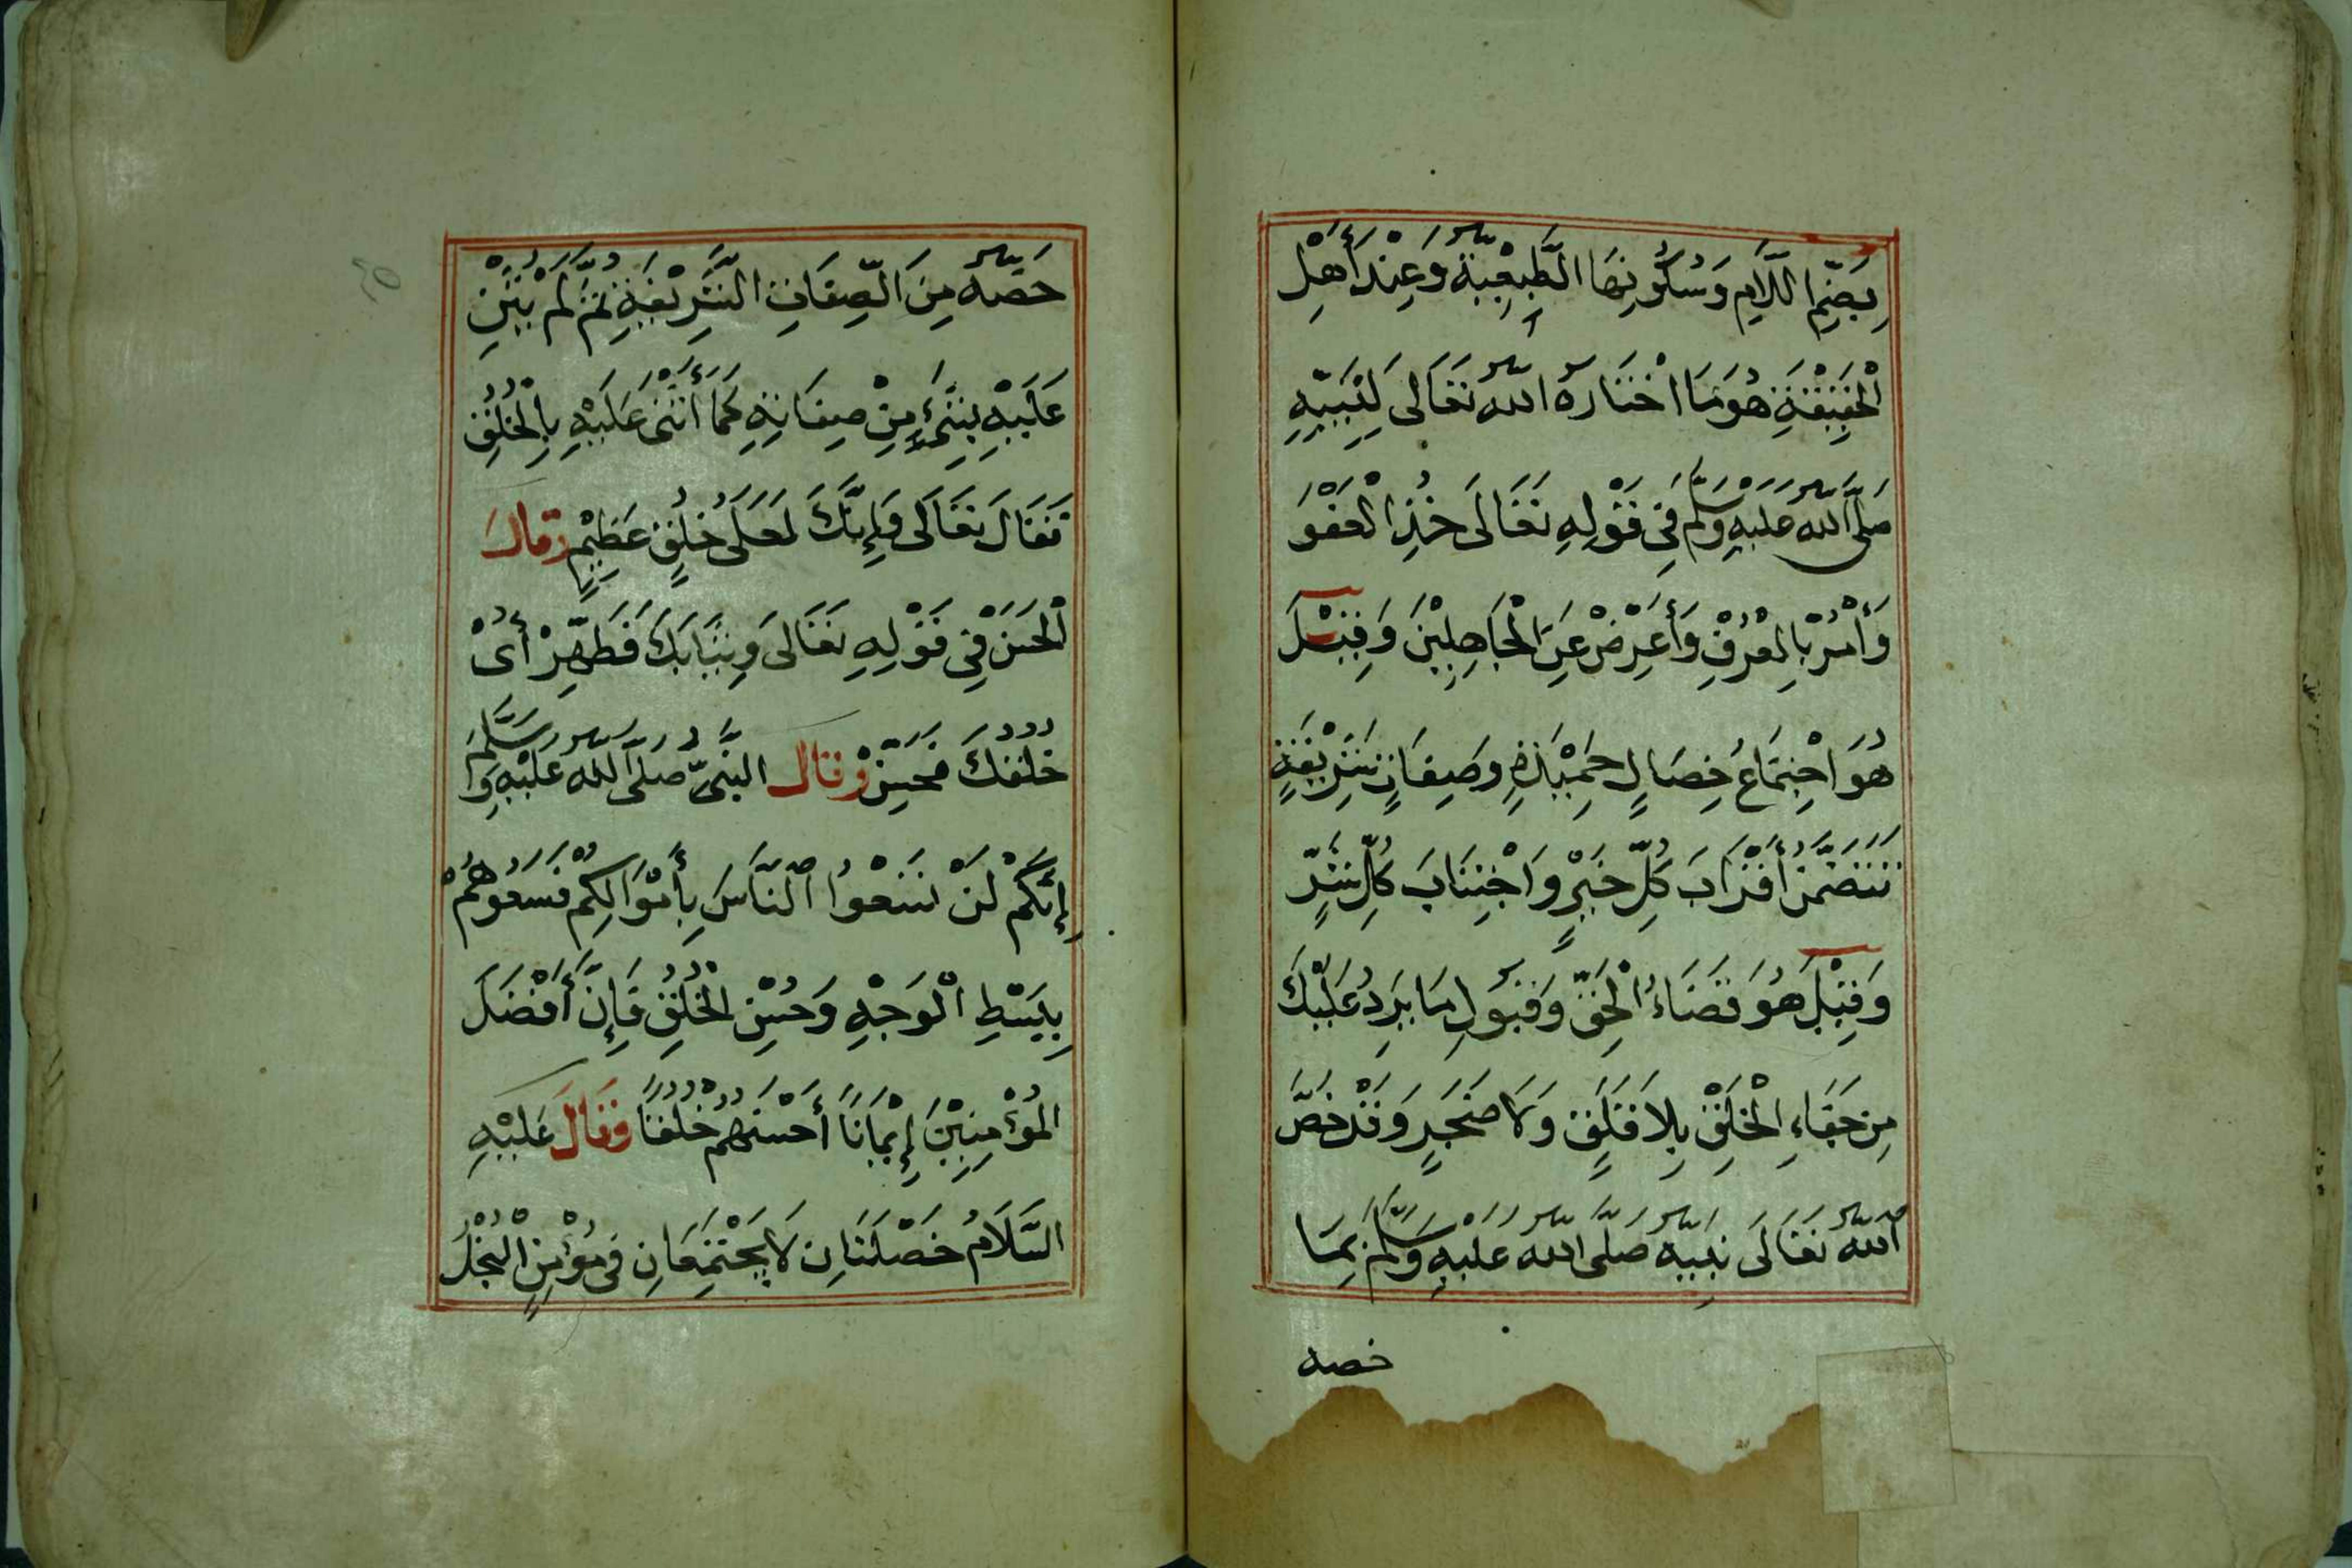 بِضَمِّ اللَّامِ وَسُكُونِهَا الطَّبِيعِيَّةُ وَعِنْدَ أَهْلِ
الْحَقِيقَةِ هُوَ مَا اخْتَارَهُ اللّٰهُ تَعَالَى لِنَبِيِّهِ
صَلَّى اللّٰهُ عَلَيْهِ وَسَلَّمَ فِي قَوْلِهِ تَعَالَى خُذِ الْعَفْوَ
وَأْمُرْ بِالْعُرْفِ وَأَعْرِضْ عَنِ الْجَاهِلِيْنَ وَقِيْلَ
هُوَ اجْتِمَاعُ خِصَالٍ حَمِيْدَةٍ وَصِفَاتٍ شَرِيْفَةٍ
تَتَضَمَّنُ أَقْرَابَ كُلِّ خَيْرٍ وَاجْتِنَابَ كُلِّ شَرٍّ
وَقِيْلَ هُوَ قَضَاءُ الْحَقِّ وَقَبُولِ مَا يَرِدُ عَلَيْكَ
مِنْ جَفَاءِ الْخَلْقِ بِلَا قَلَقٍ وَلَا ضَجَرٍ وَقَدْ خَصَّ
اللّٰهُ تَعَالَى نَبِيَّهُ صَلَّى اللّٰهُ عَلَيْهِ وَسَلَّمَ بِمَا
خصه
خَصَّهُ مِنَ الصِّفَاتِ الشَّرِيْفَةِ ثُمَّ لَمْ يُثْنِ
عَلَيْهِ بِشَيْءٍ مِنْ صِفَاتِهِ كَمَا أَثْنَى عَلَيْهِ بِالْخُلُقِ
فَقَالَ تَعَالَى وَإِنَّكَ لَعَلَى خُلُقٍ عَظِيْمٍ وقال
الْحَسَنُ فِي قَوْلِهِ تَعَالَى وَثِيَابَكَ فَطَهِّرْ أَيْ
خُلُقَكَ فَحَسِّنْ وقال النَّبِيُّ صَلَّى اللّٰهُ عَلَيْهِ وَسَلَّمَ
إِنَّكُمْ لَنْ تَسَعُوا النَّاسَ بِأَمْوَالِكُمْ فَسَعُوهُمْ
بِبَسْطِ الْوَجْهِ وَحُسْنِ الْخُلُقِ فَإِنَّ أَفْضَلَ
الْمُؤْمِنِيْنَ إِيْمَانًا أَحْسَنُهُمْ خُلُقًا وَقَالَ عَلَيْهِ
السَّلَامُ خَصْلَتَانِ لَا يَجْتَمِعَانِ فِي مُؤْمِنٍ الْبُخْلُ